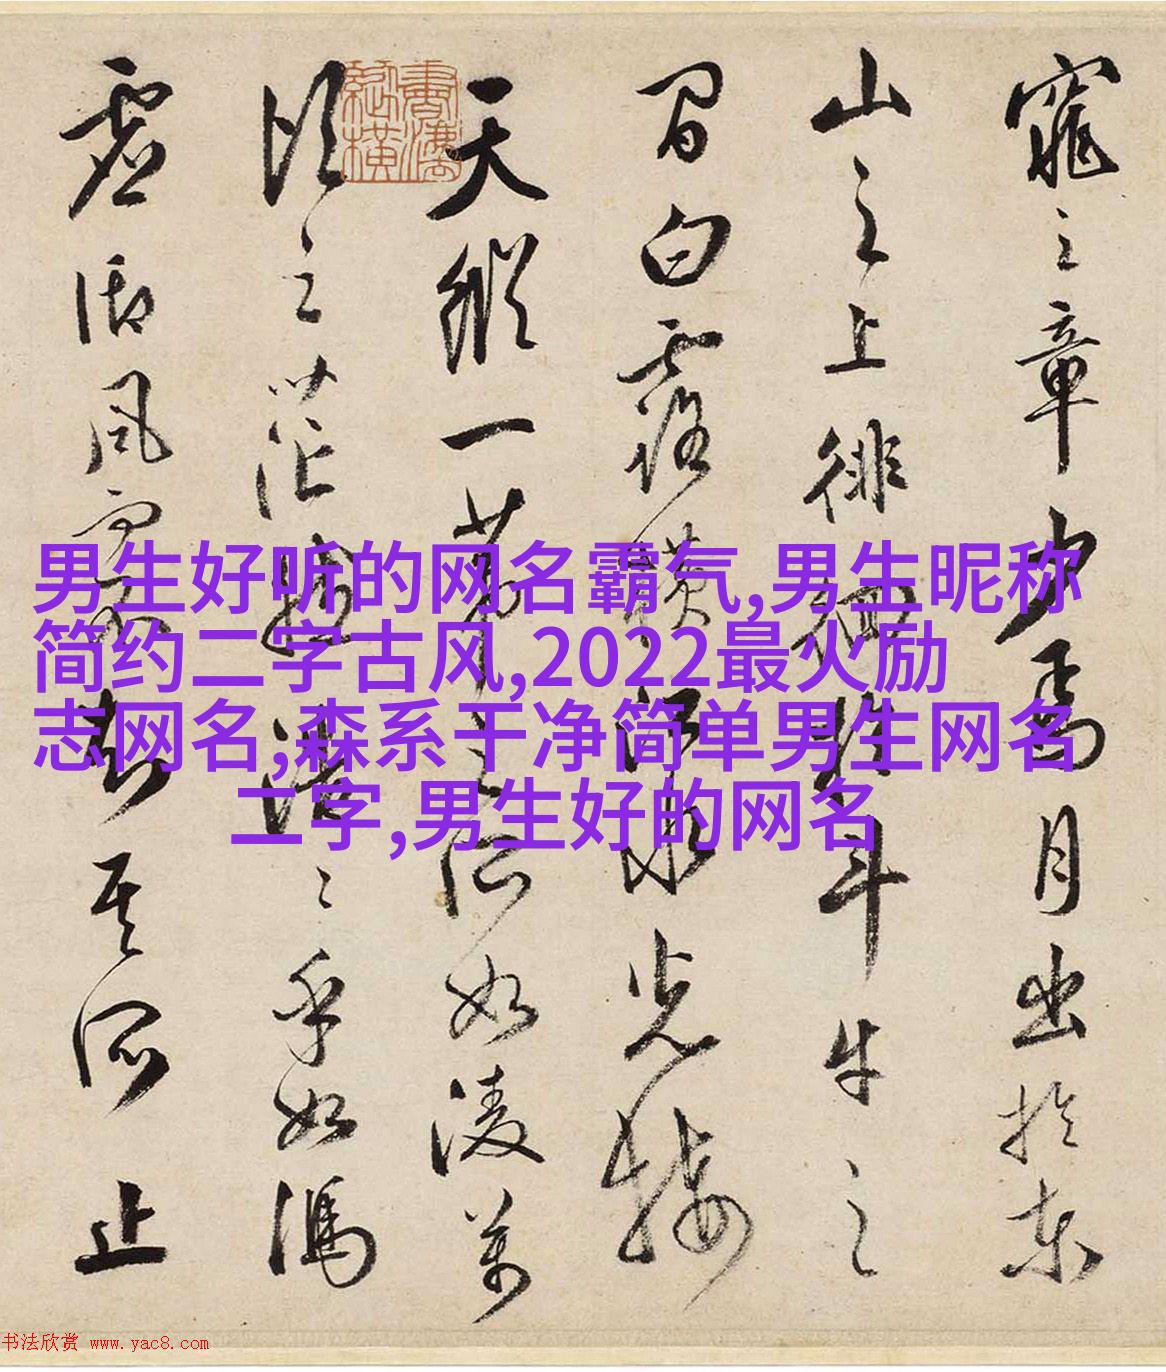 窕之章少焉月出於東
山之上徘徊於斗牛之
間白露橫江水光接
天縱一葦之所如陵萬
頃之茫然浩々乎如馮
虛御風而不知其所止
男生好听的网名霸气,男生昵称
简约二字古风,2022最火励
志网名;森系干净简单男生网名
二字,男生好的网名
书法欣赏 www.yac8.com